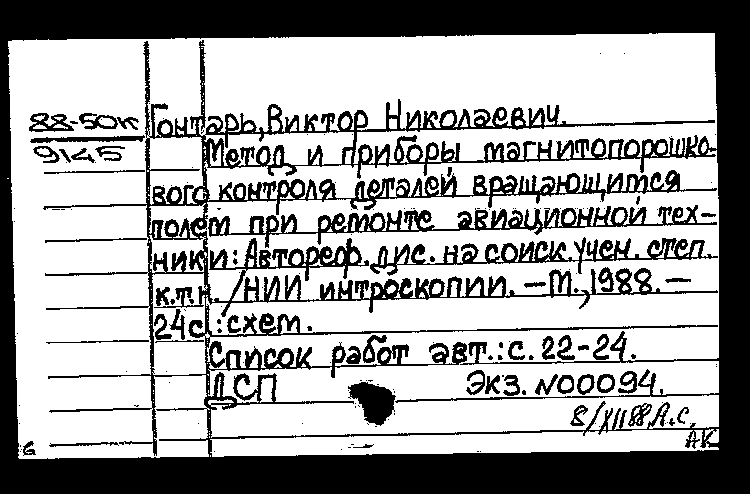 88-50к Гонтарь, Виктор Николаевич.
9145 Метод и приборы магнитопорошко-
вого контроля деталей вращающимся
полем при ремонте авиационной тех-
ники: Автореф. дис. на соиск. учен. степ.
к.т.н. /НИИ интроскопии. — М., 1988. —
24с.: схем.
Список работ авт.: с. 22-24.
ДСП Экз. №00094.
8/XII 88. А.С.
6 АК